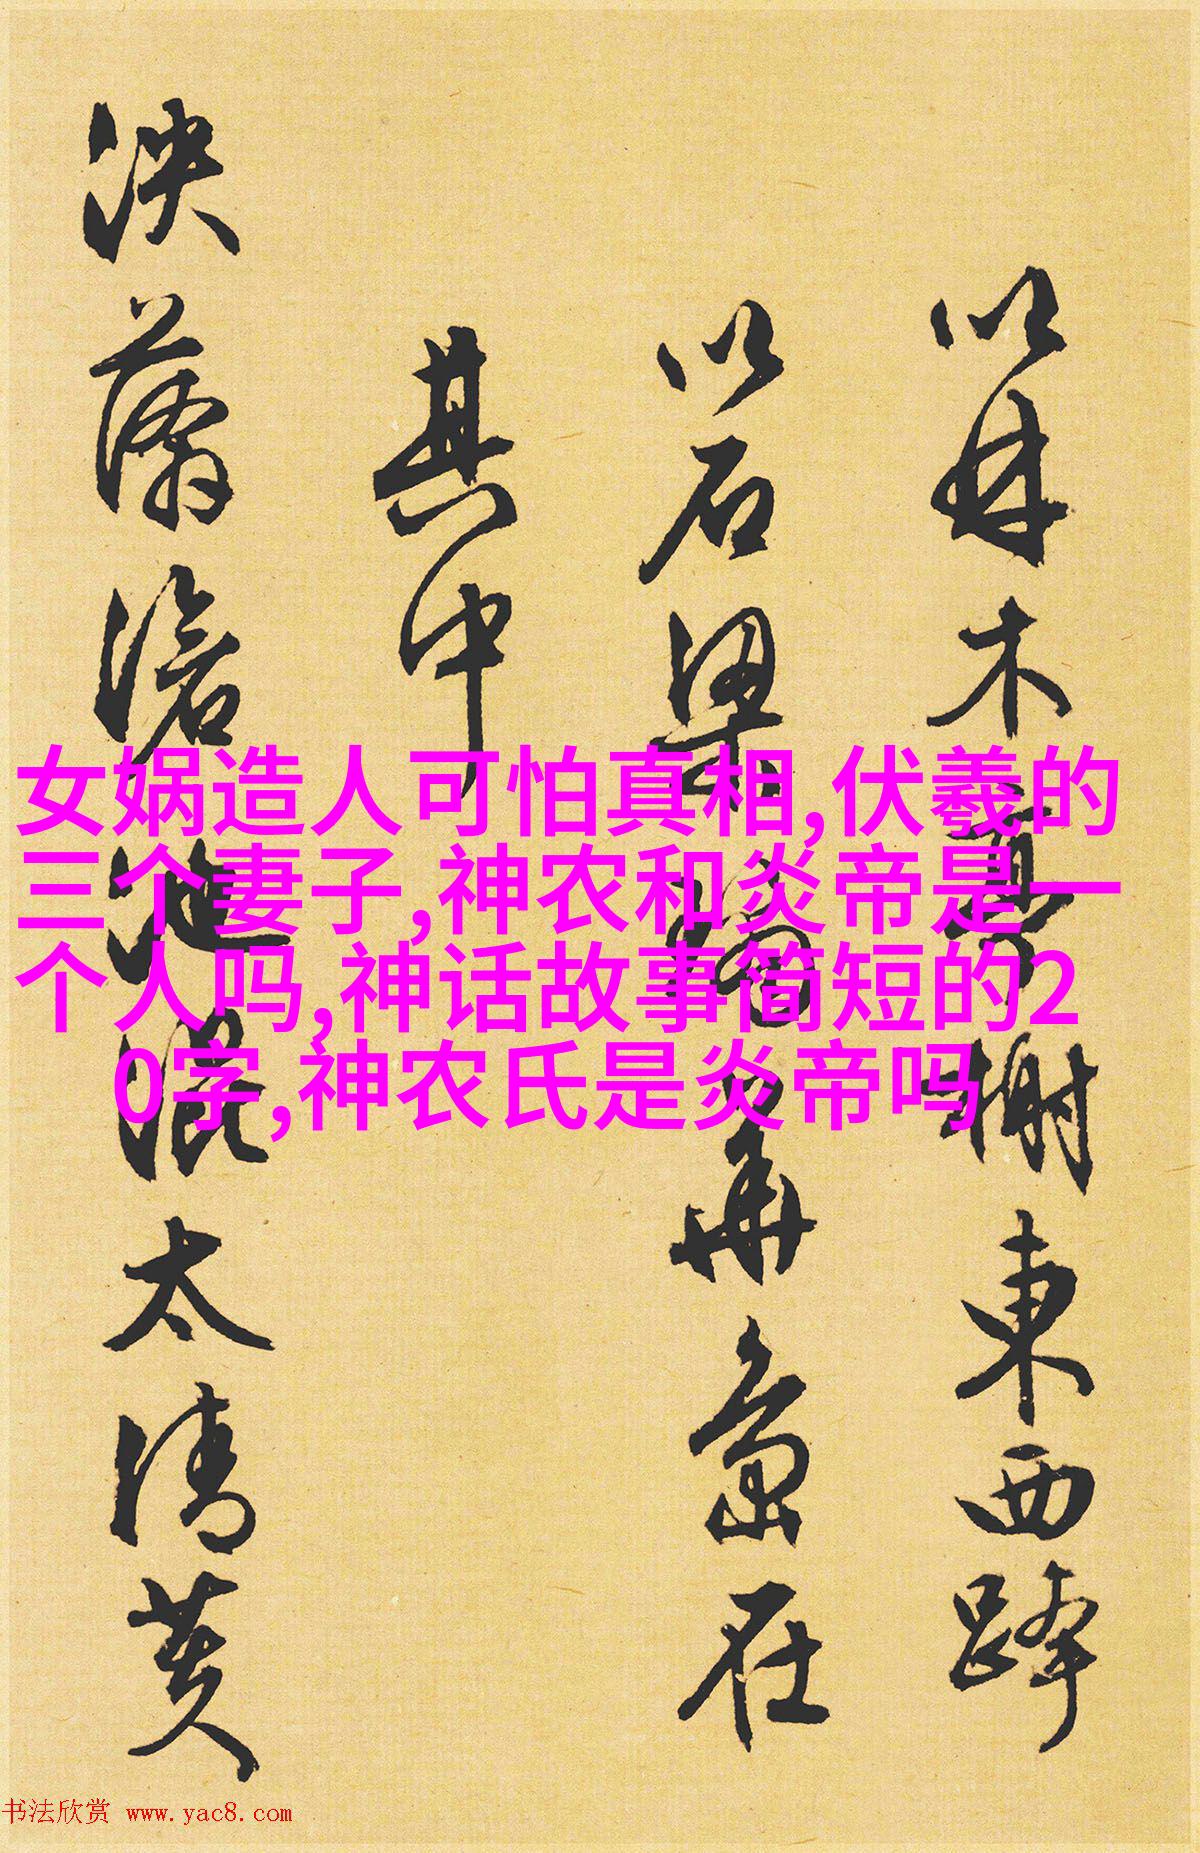 以林木為榭東西跨
以石梁
其中
泱漭澹池混太清黄
女娲造人可怕真相,伏羲的
三个妻子,神农和炎帝是一
个人吗,神话故事简短的2
0字,神农氏是炎帝吗
书法欣赏 www.yac8.com